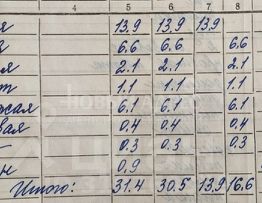 4 5 6 7 8
я 13,9 13,9 13,9
6,6 6,6 6,6
я 2.1 2.1 2.1
т 1.1 1.1 1.1
жая 6,1 6,1 6,1
вая 0,4 0,4 0,4
0.3 0.3 0.3
н 0,9
Итого: 31.4 30.5 13,9 16.6